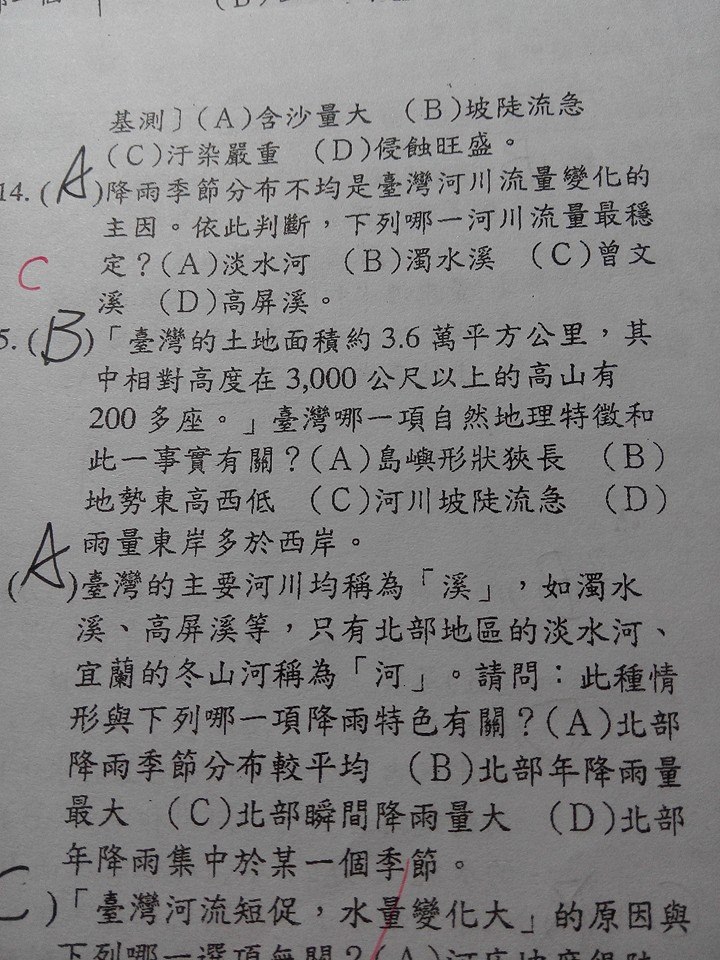 基測〕(A)含沙量大 (B)坡陡流急
(C)汙染嚴重 (D)侵蝕旺盛。
14.(A)降雨季節分布不均是臺灣河川流量變化的
主因。依此判斷，下列哪一河川流量最穩
C
定？(A)淡水河 (B)濁水溪 (C)曾文
溪 (D)高屏溪。
5.(B)「臺灣的土地面積約 3.6 萬平方公里，其
中相對高度在 3,000 公尺以上的高山有
200 多座。」臺灣哪一項自然地理特徵和
此一事實有關？(A)島嶼形狀狹長 (B)
地勢東高西低 (C)河川坡陡流急 (D)
雨量東岸多於西岸。
(A)臺灣的主要河川均稱為「溪」，如濁水
溪、高屏溪等，只有北部地區的淡水河、
宜蘭的冬山河稱為「河」。請問：此種情
形與下列哪一項降雨特色有關？(A)北部
降雨季節分布較平均 (B)北部年降雨量
最大 (C)北部瞬間降雨量大 (D)北部
年降雨集中於某一個季節。
C)「臺灣河流短促，水量變化大」的原因與
下列哪一選項無關？(A)河床坡度很陡